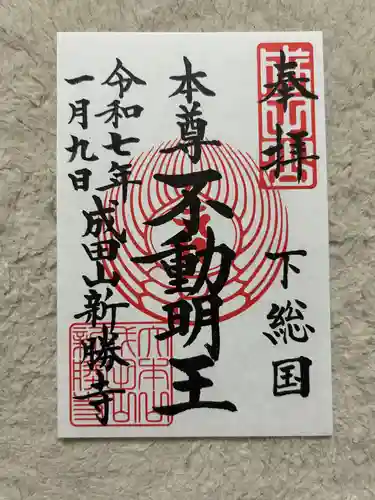 奉拝
下総国
本尊不動明王
令和七年
一月九日
成田山新勝寺